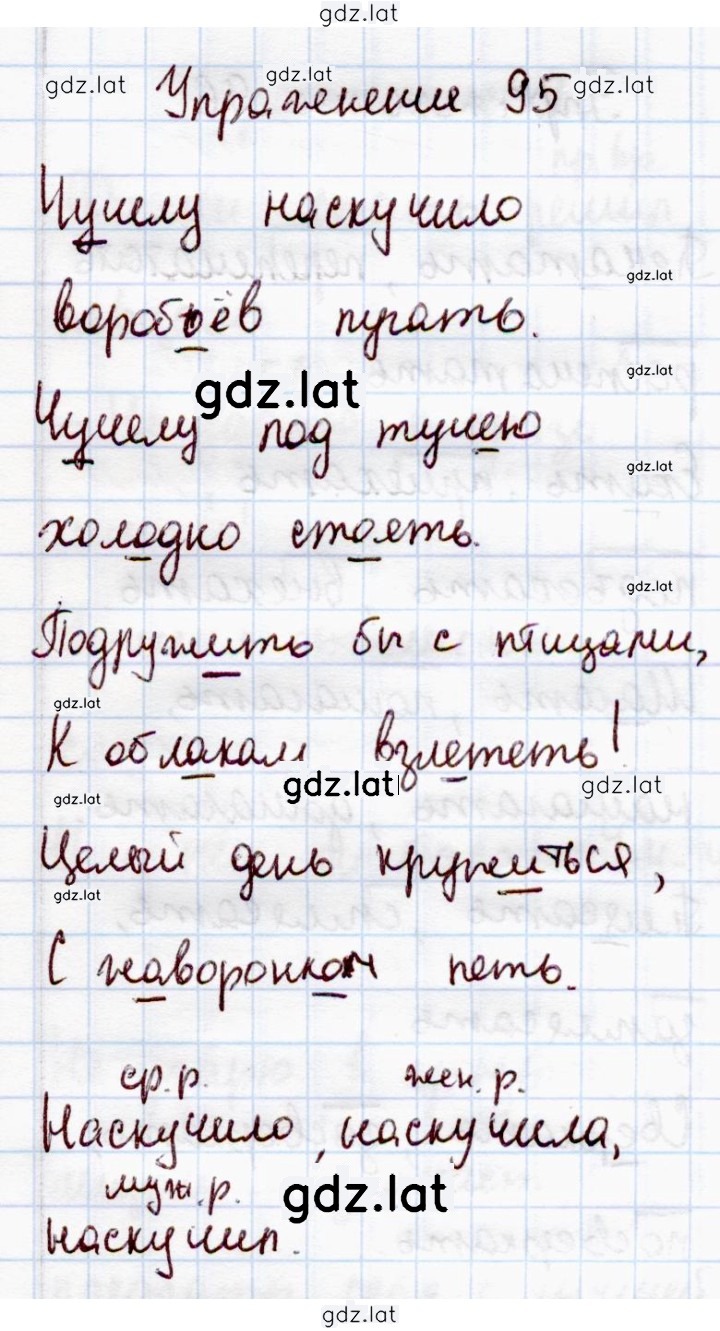 gdz.lat
gdz.lat gdz.lat gdz.lat
Упражнение 95
Чучелу наскучило
gdz.lat
воробьёв пугать.
gdz.lat
gdz.lat
Чучелу под тучею
gdz.lat
холодно стоять.
gdz.lat
Подружить бы с птицами,
gdz.lat
К облакам взлететь!
gdz.lat gdz.lat
gdz.lat
Целый день кружиться,
gdz.lat
С жаворонком петь.
ср.р. жен.р.
Наскучило, наскучила,
муж.р. gdz.lat
наскучил.
gdz.lat